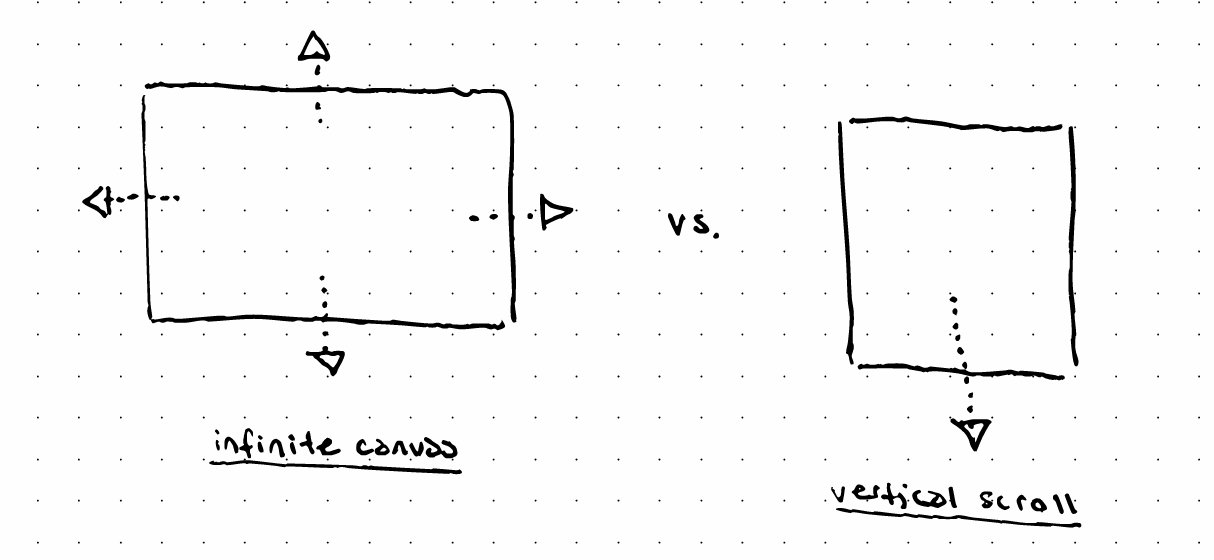 vs.
infinite canvas
vertical scroll